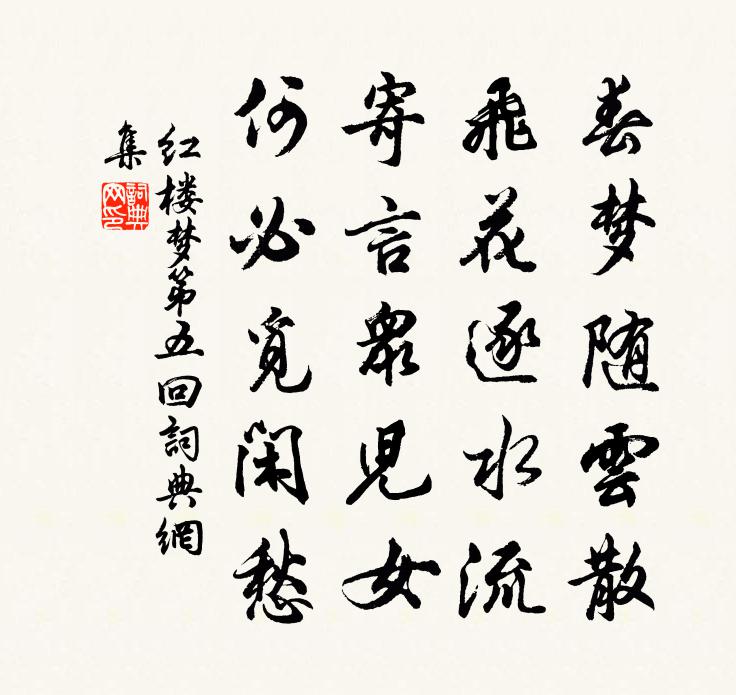 春梦随雲散
飛花逐水流
寄言眾児女
何必覓閑愁
红楼梦第五回詞典網
集
詞典
网印